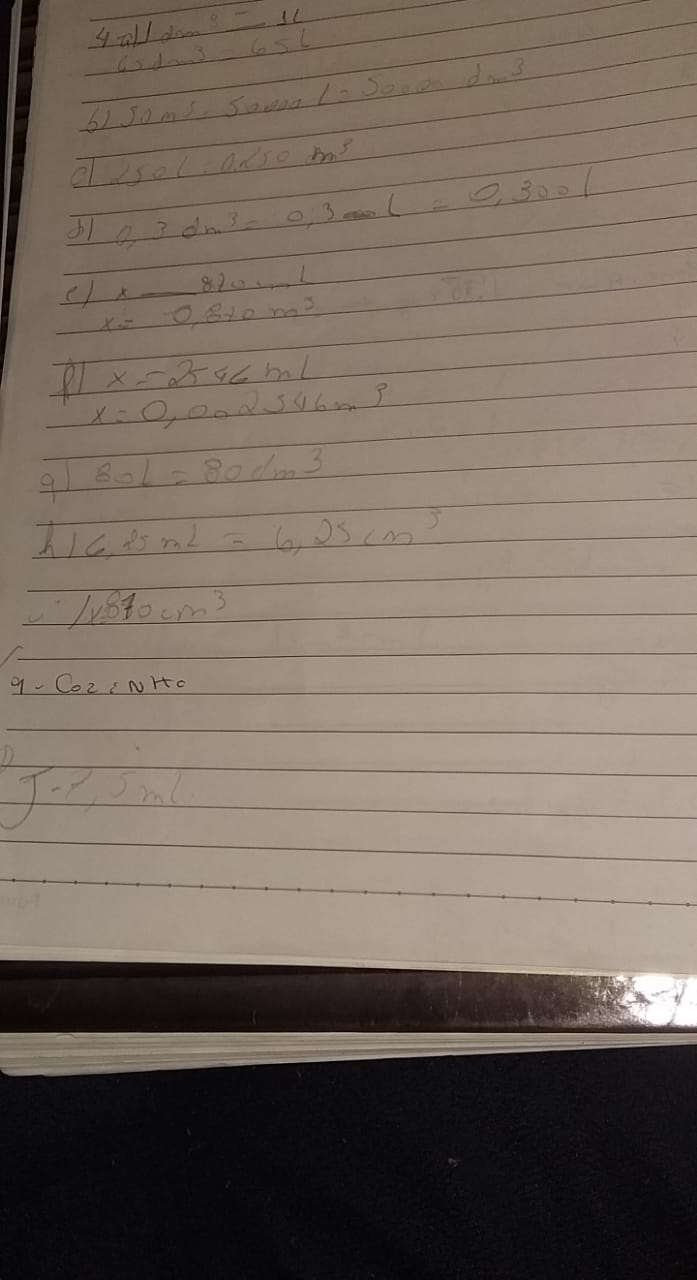 4 a) 1 dm³ = 1L
65dm³ = 65L
b) 50 m³ = 50000 l = 50000 dm³
c) 250l = 0,250 m³
d) 0,3 dm³ = 0,3 L = 0,300l
e) x 870 mL
x = 0,870 m³
f) x = 2546 ml
x = 0,002546m³
g) 80L = 80dm³
h) 6,25mL = 6,25 cm³
i) x870cm³
9- COZiNHO
J-7,5ml.